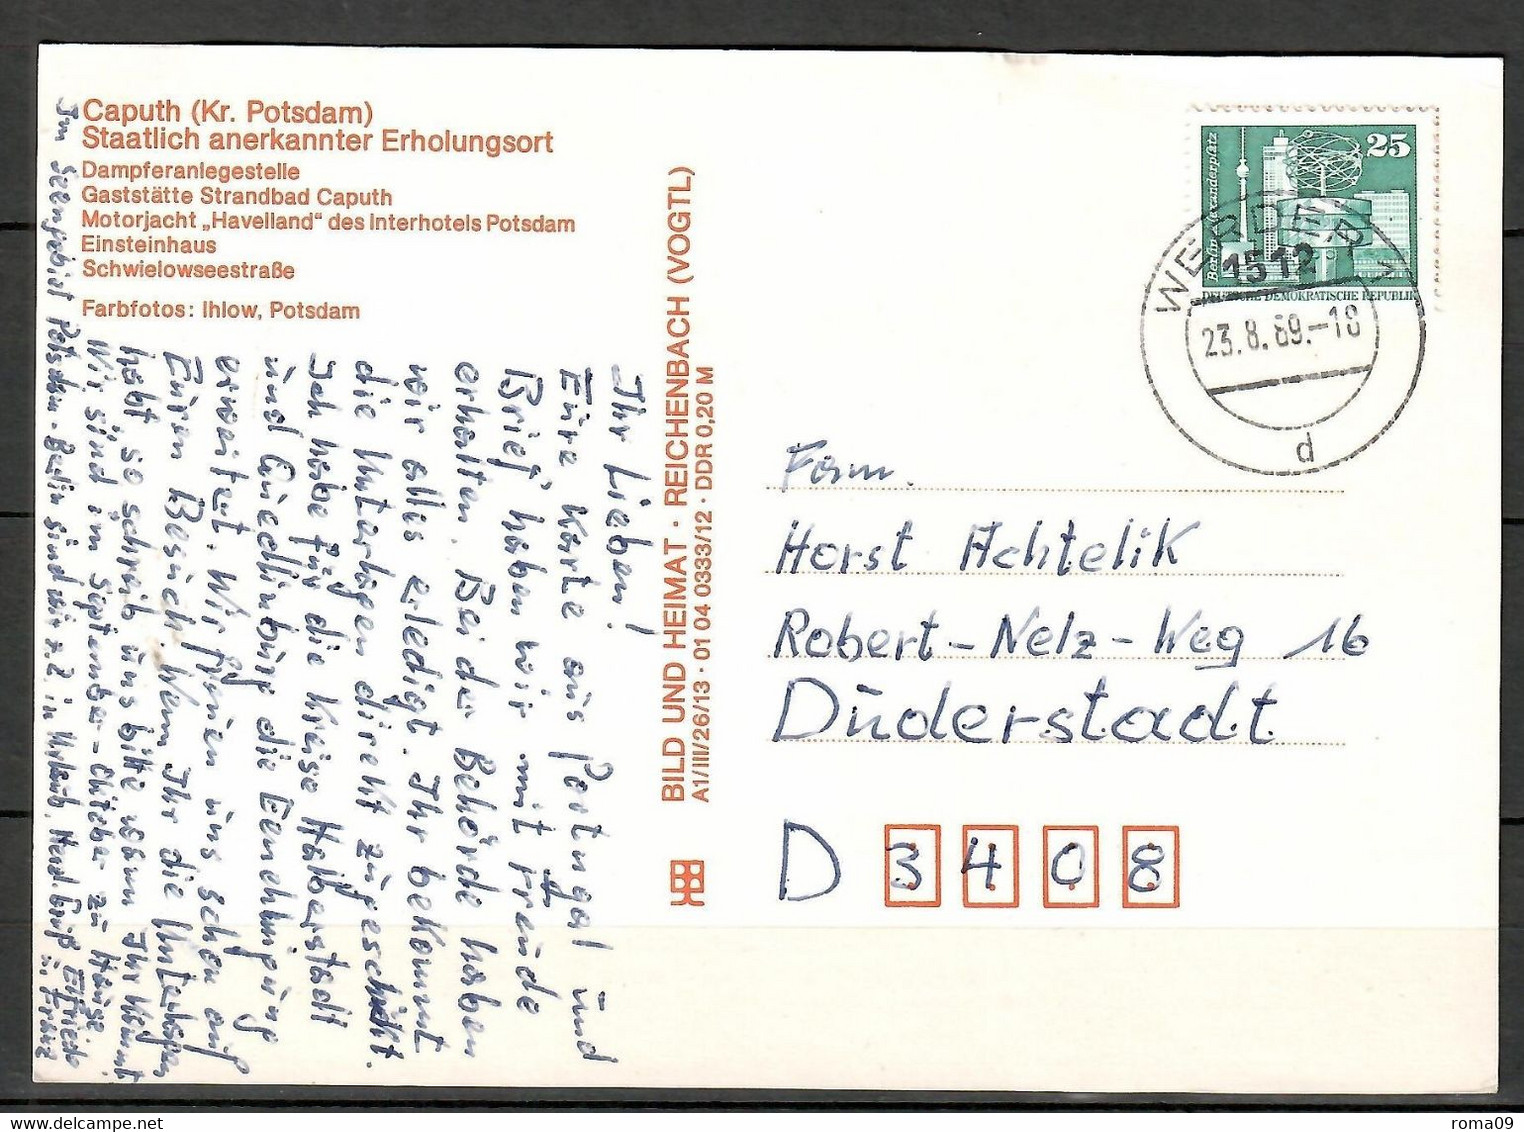 Caputh (Kr. Potsdam)
Staatlich anerkannter Erholungsort
Dampferanlegestelle
Gaststätte Strandbad Caputh
Motorjacht „Havelland“ des Interhotels Potsdam
Einsteinhaus
Schwielowseestraße
Farbfotos: Ihlow, Potsdam
Ihr Lieben!
Eure Karte aus Portugal und
Brief, haben wir mit Freude
erhalten. Bei der Behörde haben
wir alles erledigt. Ihr bekommt
die Unterlagen direkt zugeschickt.
Ich habe für die Kreise Halberstadt
und Quedlinburg die Genehmigung
erweitert. Wir freuen uns schon auf
Euren Besuch. Wenn Ihr die Unterlagen
habt, so schreib uns bitte wann Ihr kommt
Wir sind im September - Oktober zu Hause.
Im Seengebiet Potsdam-Berlin sind wir z.Z. in Urlaub, Herzl. Grüß Elfriede
u. Franz
BILD UND HEIMAT · REICHENBACH (VOGTL)
A1/III/26/13 · 01 04 0333/12 · DDR 0,20 M
25
Berlin-Alexanderplatz
DEUTSCHE DEMOKRATISCHE REPUBLIK
WERDER 1
1512
23.8.89.-18
d
Fam.
Horst Achtelik
Robert-Nelz-Weg 16
Duderstadt
D 3408
roma09